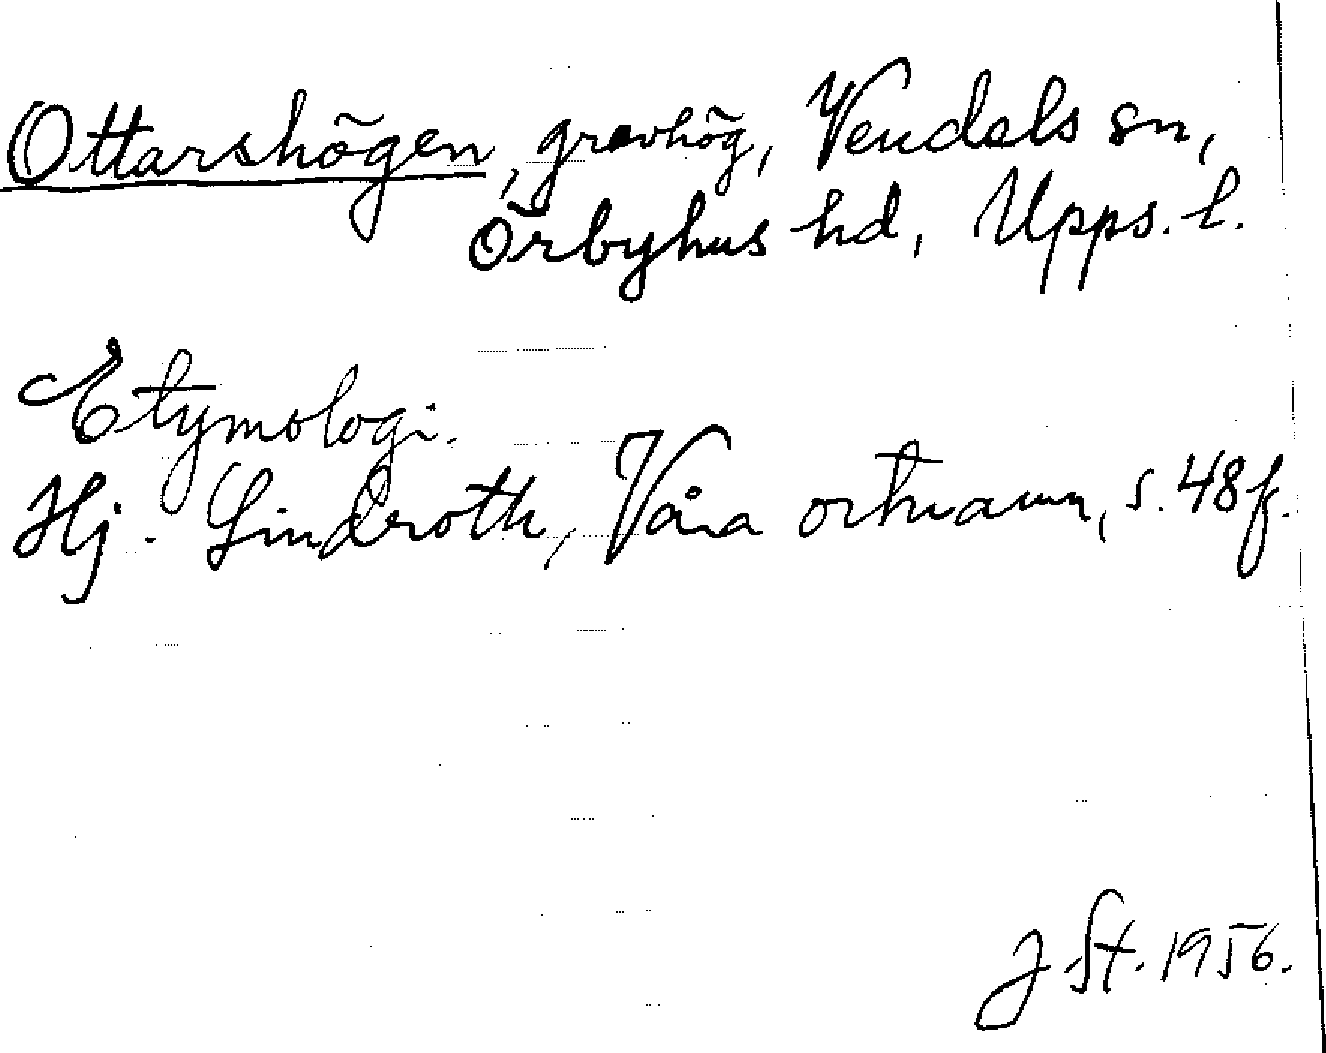 Ottarshögen, gravhög, Vendels sn,
Örbyhus hd, Upps. l.
Etymologi.
Hj. Lindroth, Våra ortnamn, s. 48 f.
J. St. 1956.